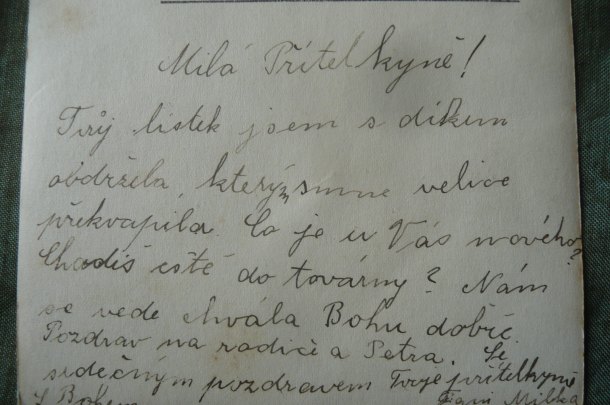 Milá Přítelkyně!
Tvůj lístek jsem s díkem
obdržela, kterým smne velice
překvapila. Co je u Vás nového?
Chodíš eště do továrny? Nám
se vede chvála Bohu dobře.
Pozdrav na rodiče a Petra. Se
srdečným pozdravem Tvoje přítelkyně
S Bohem Milka